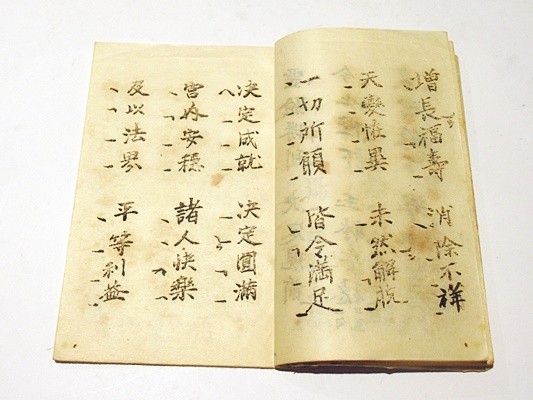 増長福壽 消除不祥
天變怪異 未然解脱
一切所願 皆令満足
决定成就 决定圓滿
宮内安穏 諸人快樂
及以法界 平等利益